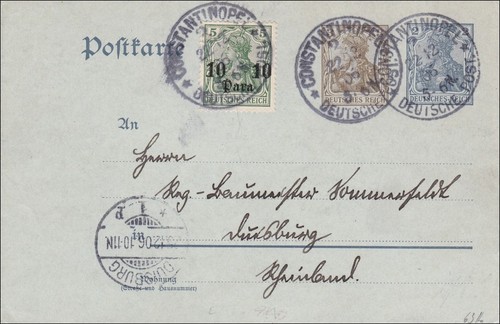 CONSTANTINOPEL
DEUTSCHE POST
CONSTANTINOPEL
DEUTSCHE POST
Postkarte
5
5
10 10
Para
DEUTSCHES REICH
DEUTSCHES REICH
DEUTSCHES REICH
An
Herrn
Reg.-Baumeister Sommerfeldt
Duisburg
Rheinland.
12.06.10-11N.
DUISBURG
Wohnung
(Straße und Hausnummer)